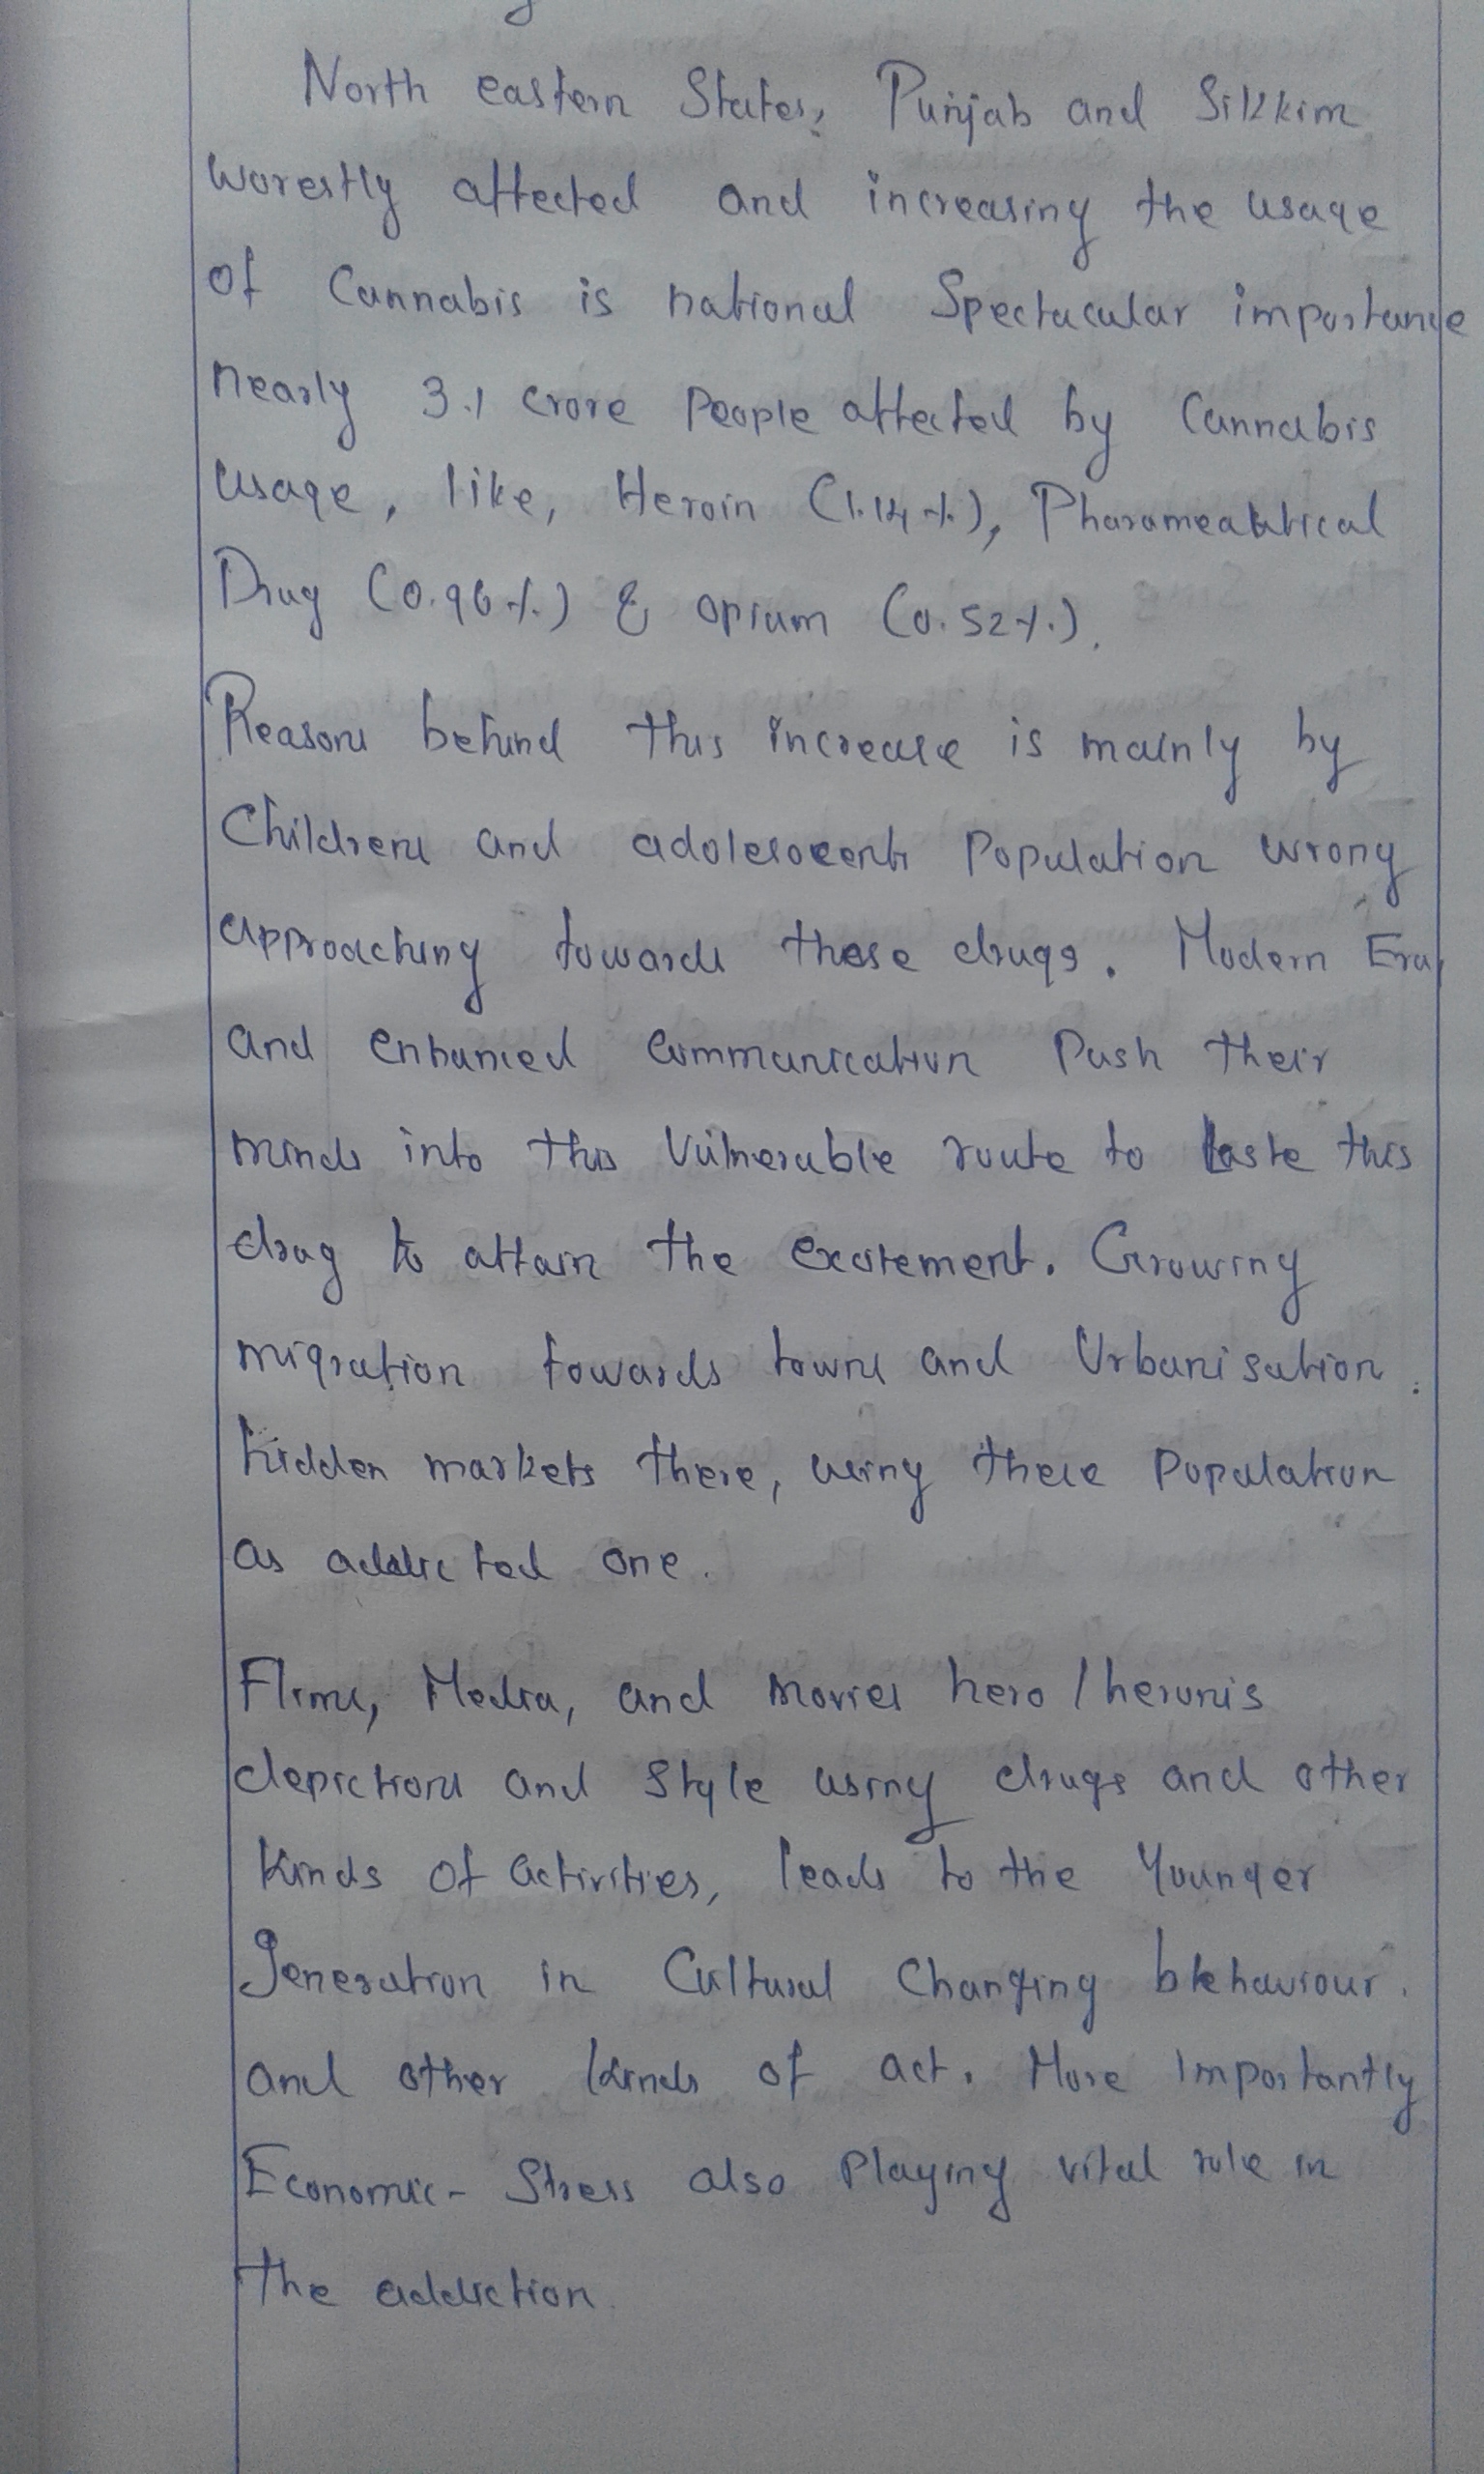 North eastern States, Punjab and Sikkim
worestly affected and increasing the usage
of Cannabis is national Spectacular importance
nearly 3.1 crore People affected by Cannabis
usage, like, Heroin (1.14%), Pharameabtical
Drug (0.96%) & opium (0.52%).
Reasons behind this increase is mainly by
Childrens and adolesocents Population wrong
approaching towards these drugs. Modern Era,
and enhanced communication Push their
minds into this Vulnerable route to taste this
drug to attain the excitement. Growing
migration towards towns and Urbanisation.
hidden markets there, using these Population
as addicted one.
Flims, Media, and movies hero / heronis
depictions and Style using drugs and other
kinds of activities, leads to the Younger
Generation in Cultural Changing bhehaviour.
and other kinds of act. More Importantly
Economic - Stress also Playing vital role in
the addiction.